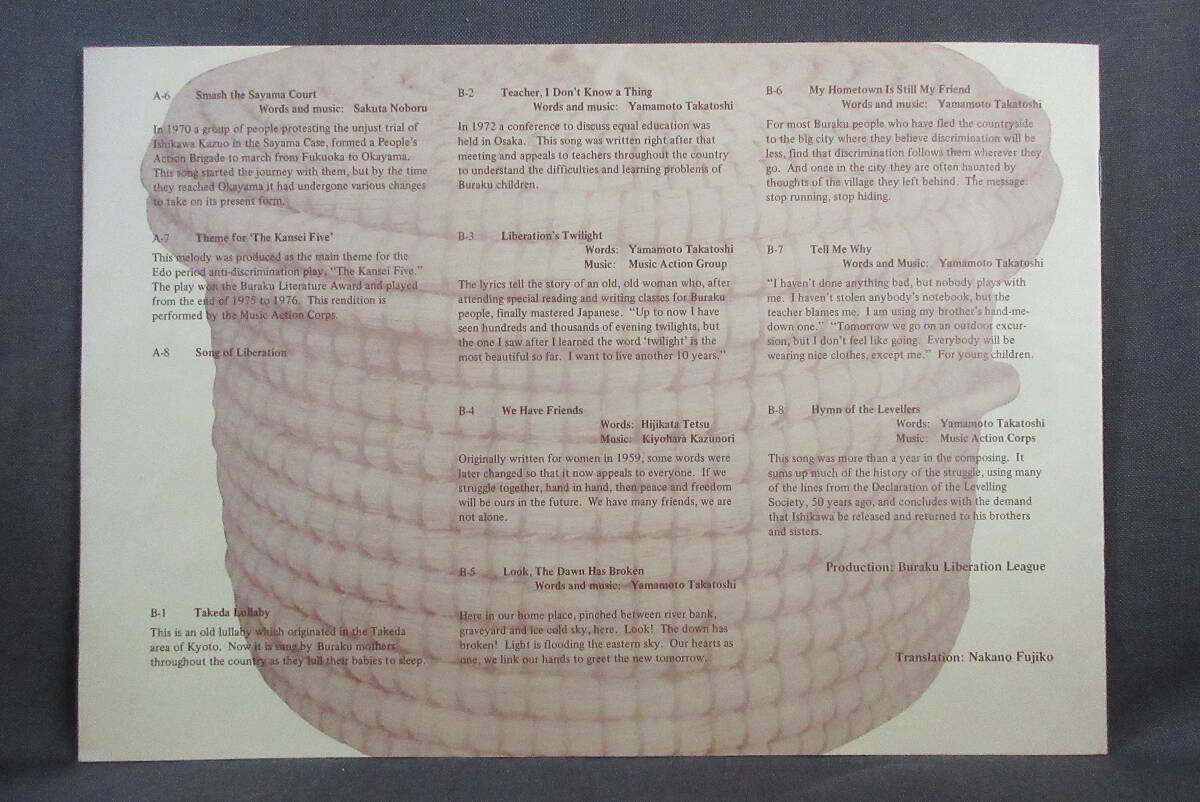 A-6 Smash the Sayama Court
Words and music: Sakuta Noboru
In 1970 a group of people protesting the unjust trial of
Ishikawa Kazuo in the Sayama Case, formed a People's
Action Brigade to march from Fukuoka to Okayama.
This song started the journey with them, but by the time
they reached Okayama it had undergone various changes
to take on its present form.
A-7 Theme for 'The Kansei Five'
This melody was produced as the main theme for the
Edo period anti-discrimination play, "The Kansei Five."
The play won the Buraku Literature Award and played
from the end of 1975 to 1976. This rendition is
performed by the Music Action Corps.
A-8 Song of Liberation
B-1 Takeda Lullaby
This is an old lullaby which originated in the Takeda
area of Kyoto. Now it is sung by Buraku mothers
throughout the country as they lull their babies to sleep.
B-2 Teacher, I Don't Know a Thing
Words and music: Yamamoto Takatoshi
In 1972 a conference to discuss equal education was
held in Osaka. This song was written right after that
meeting and appeals to teachers throughout the country
to understand the difficulties and learning problems of
Buraku children.
B-3 Liberation's Twilight
Words: Yamamoto Takatoshi
Music: Music Action Group
The lyrics tell the story of an old, old woman who, after
attending special reading and writing classes for Buraku
people, finally mastered Japanese. "Up to now I have
seen hundreds and thousands of evening twilights, but
the one I saw after I learned the word 'twilight' is the
most beautiful so far. I want to live another 10 years."
B-4 We Have Friends
Words: Hijikata Tetsu
Music: Kiyohara Kazunori
Originally written for women in 1959, some words were
later changed so that it now appeals to everyone. If we
struggle together, hand in hand, then peace and freedom
will be ours in the future. We have many friends, we are
not alone.
B-5 Look, The Dawn Has Broken
Words and music: Yamamoto Takatoshi
Here in our home place, pinched between river bank,
graveyard and ice cold sky, here. Look! The down has
broken! Light is flooding the eastern sky. Our hearts as
one, we link our hands to greet the new tomorrow.
B-6 My Hometown Is Still My Friend
Words and music: Yamamoto Takatoshi
For most Buraku people who have fled the countryside
to the big city where they believe discrimination will be
less, find that discrimination follows them wherever they
go. And once in the city they are often haunted by
thoughts of the village they left behind. The message:
stop running, stop hiding.
B-7 Tell Me Why
Words and Music: Yamamoto Takatoshi
"I haven't done anything bad, but nobody plays with
me. I haven't stolen anybody's notebook, but the
teacher blames me. I am using my brother's hand-me-
down one." "Tomorrow we go on an outdoor excur-
sion, but I don't feel like going. Everybody will be
wearing nice clothes, except me." For young children.
B-8 Hymn of the Levellers
Words: Yamamoto Takatoshi
Music: Music Action Corps
This song was more than a year in the composing. It
sums up much of the history of the struggle, using many
of the lines from the Declaration of the Levelling
Society, 50 years ago, and concludes with the demand
that Ishikawa be released and returned to his brothers
and sisters.
Production: Buraku Liberation League
Translation: Nakano Fujiko